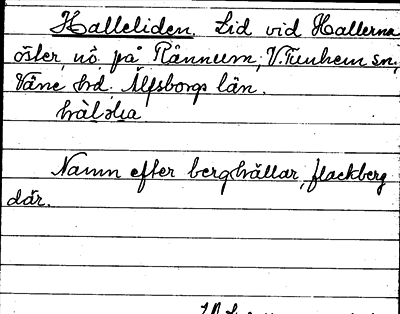 Halleliden. Lid vid Hallerna
öster, nö. på Rånnum, V. Tunhem sn,
Väne hd. Älfsborgs län.
Namn efter berghällar, flackberg
där.